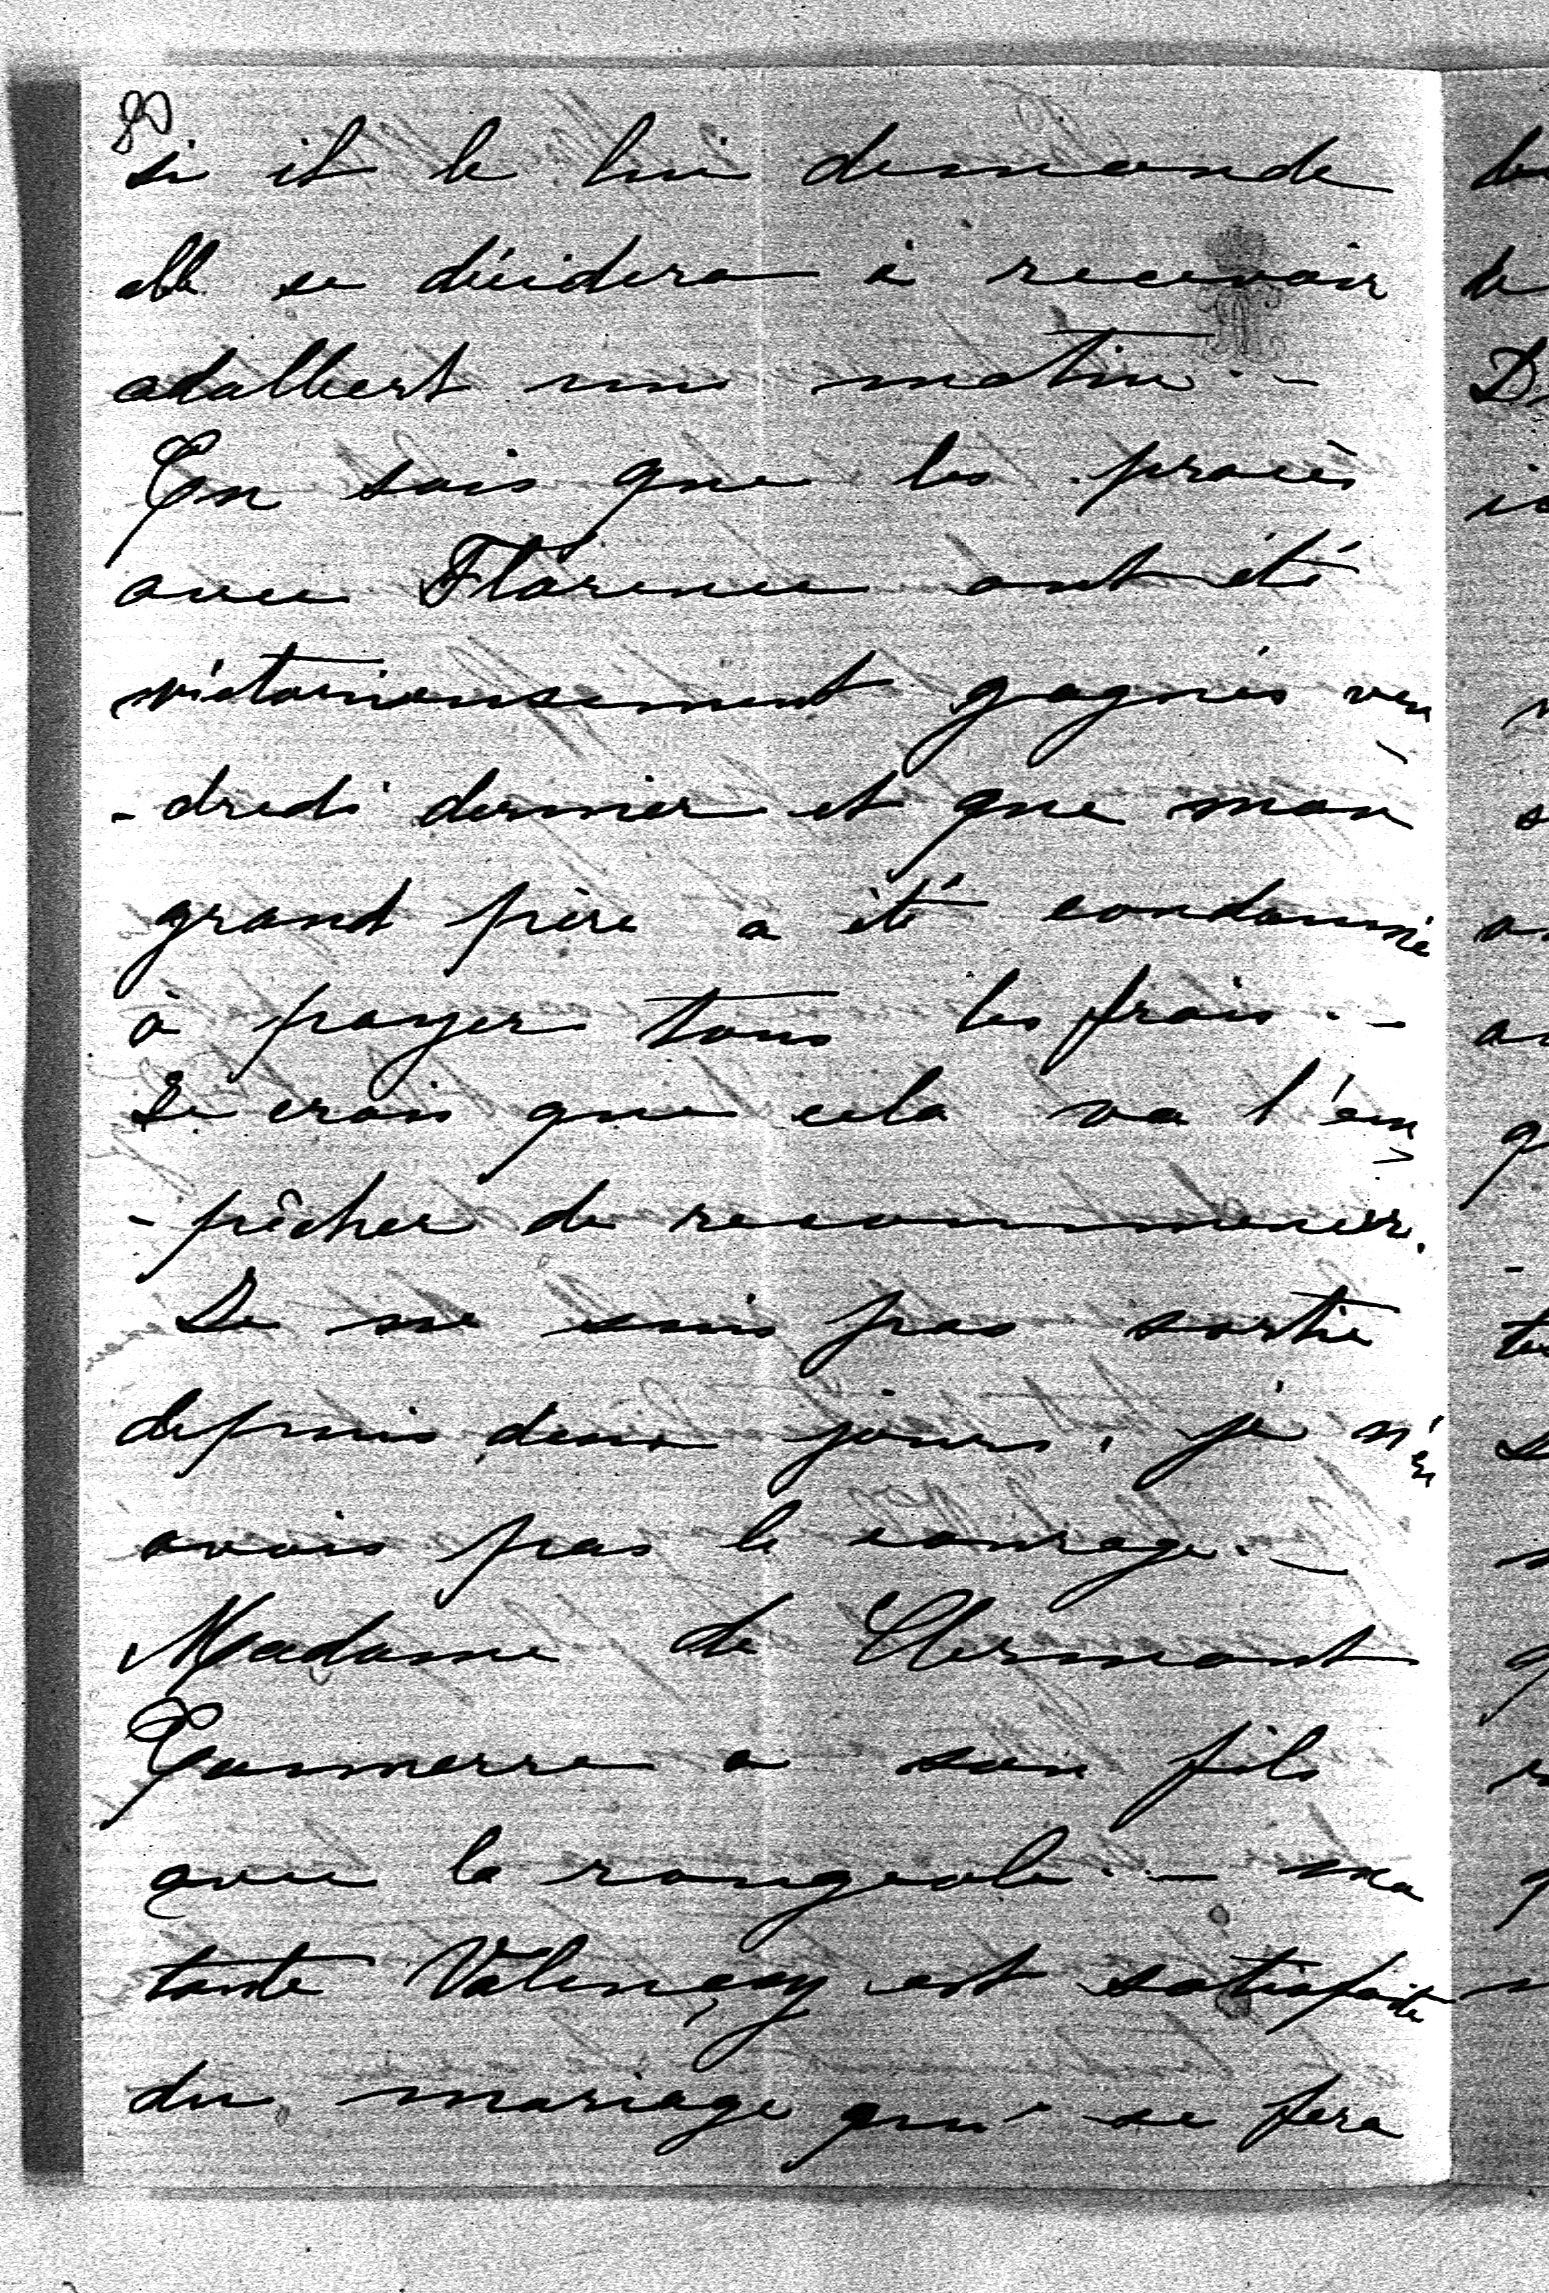 80
si il le lui demande
elle se décidera à recevoir
adalbert un matin. —
Tu sais que les procès
avec Florence ont été
victorieusement gagnés ven
- dredi dernier et que mon
grand père a été condamné
à payer tous les frais. —
Je crois que cela va l'em
- pêcher de recommencer.
Je ne suis pas sortie
depuis deux jours. je n'en
avais pas le courage. —
Madame de Clermont
Tonnerre a son fils
avec la rougeole. — ma
tante Valençay est satisfaite
du mariage qui se fera